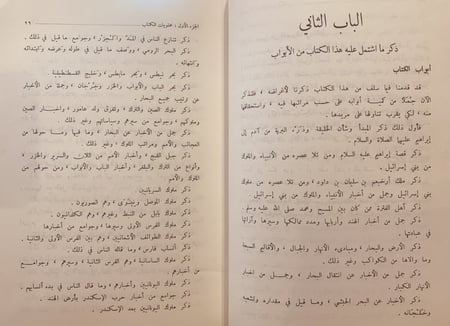 الباب الثاني
ذكر ما اشتمل عليه هذا الكتاب من الأبواب
أبواب الكتاب
قد قدمنا فيما سلف من هذا الكتاب ذكرنا لأغراضه ، فلنذكر
الآن جملاً من كمية أبوابه على حسب مراتبها فيه ، واستحقاقها
منه ، لكي يقرب تناولها على مريدها .
فأول ذلك ذكر المبدأ وشأن الخليقة وذرء البرية من آدم إلى
إبراهيم عليهما الصلاة والسلام .
ذكر قصة إبراهيم عليه السلام ومن تلا عصره من الأنبياء والملوك
من بني إسرائيل .
ذكر ملك أرخبعم بن سليمان بن داود ، ومن تلا عصره من ملوك
بني إسرائيل وجمل من أخبار الأنبياء والملوك من بني إسرائيل .
ذكر أهل الفترة ممن كان بين المسيح ومحمد صلى الله عليه وسلم .
ذكر جمل من أخبار الهند وأربابها وبدء ممالكها وسيرها وآرائها
في عباداتها .
ذكر الأرض والبحار ، ومبادىء الأنهار والجبال ، والأقاليم السبعة
وما والاها من الكواكب وغير ذلك .
ذكر جمل من الأخبار عن انتقال البحار ، وجمل من أخبار
الأنهار الكبار .
ذكر الأخبار عن البحر الحبشي ، وما قيل في مقداره وتشعبه
وخلجانه .
الجزء الأول : محتويات الكتاب ٢٩
ذكر تنازع الناس في المد والجزر ، وجوامع ما قيل في ذلك .
ذكر البحر الرومي ، ووصف ما قيل في طوله وعرضه وابتدائه
وانتهائه .
ذكر بحر نيطس ، وبحر مايطس ، وخليج القسطنطينية .
ذكر بحر الباب والأبواب والخزر وجرجان ، وجمل من الأخبار
عن ترتيب جميع البحار .
ذكر ملوك الصين والترك ، وتفرق ولد عامور ، وأخبار الصين
وملوكهم ، وجوامع من سيرهم وسياساتهم وغير ذلك .
ذكر جمل من الأخبار عن البحار ، وما فيها وما حولها من
العجائب والأمم ومراتب الملوك ، وغير ذلك .
ذكر جبل القبخ ، وأخبار الأمم من اللان والسرير والخزر ،
وأنواع من الترك والبلغر ، وأخبار الباب والأبواب ، ومن حولهم من
الملوك والأمم .
ذكر ملوك السريانيين .
ذكر ملوك الموصل ونينوى ، وهم الصوريون .
ذكر ملوك بابل من النبط وغيرهم ، وهم الكلدانيون .
ذكر ملوك الفرس الأولى وسيرها ، وجوامع من أخبارها .
ذكر ملوك الطوائف الأشغانيين ، وهم بين الفرس الأولى والثانية .
ذكر أنساب فارس ، وما قاله الناس في ذلك .
ذكر ملوك الساسانية ، وهم الفرس الثانية ، وسيرهم ، وجوامع
من أخبارهم .
ذكر ملوك اليونانيين وأخبارهم ، وما قاله الناس في بدء أنسابهم .
ذكر جوامع من أخبار حرب الإسكندر بأرض الهند .
ذكر ملوك اليونانيين بعد الإسكندر .